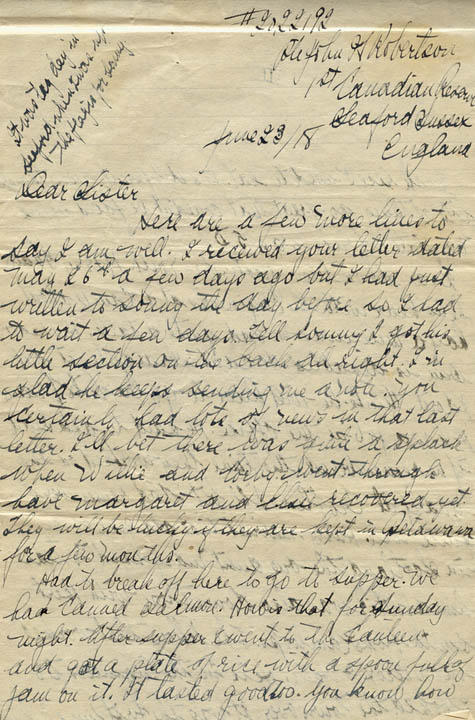 #2022192
Pte John H Robertson
1st Canadian Reserve
Seaford Sussex
England
June 23/18
Dear Sister
Here are a few more lines to
say I am well. I received your letter dated
May 26th a few days ago but I had just
written to sonny the day before so I had
to wait a few days. Tell sonny I got his
little section on the back all right. I'm
glad he keeps sending me a note. You
certainly had lots of news in that last
letter. I'll bet there was quite a splash
when Willie and went through
have margaret and recovered yet
They will be lucky if they are kept in
for a few months.
Had to break off here to go to supper. We
had Canned Salmon. How is that for Sunday
night. After supper I went to the Canteen
and got a plate of rice with a spoon full of
jam on it. It tasted good too. You know how